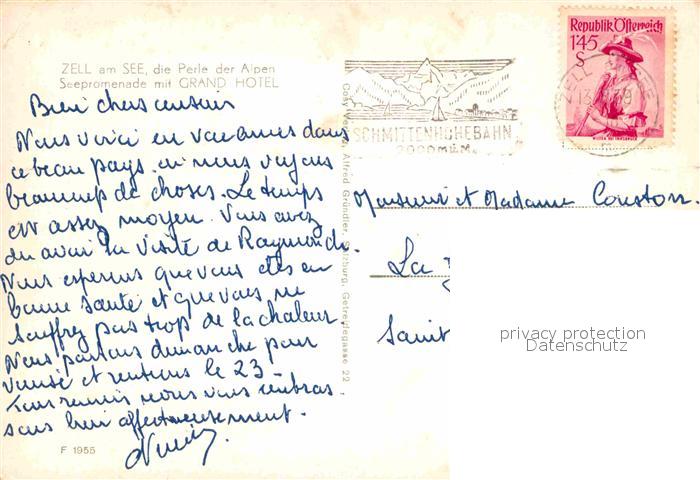 ZELL am SEE, die Perle der Alpen
Seepromenade mit GRAND HOTEL
Bien chers cousins
Nous voici en vacances dans
ce beau pays, où nous voyons
beaucoup de choses. Le temps
est assez moyen. Vous avez
du avoir la visite de Raymond.
Nous esperons que vous êtes en
bonne santé et que vous ne
souffrez pas trop de la chaleur
Nous partons dimanche pour
Venise et rentrons le 23 -
Tous reunis nous vous embras-
sons bien affectueusement.
F 1955
Cosy Verlag Alfred Gründler, Salzburg, Getreidegasse 22
SCHMITTENHÖHEBAHN
2000 m.ü.M.
Republik Österreich
1'45
S
ZELL
13
59
Monsieur et Madame Couston.
La
Saint
privacy protection
Datenschutz